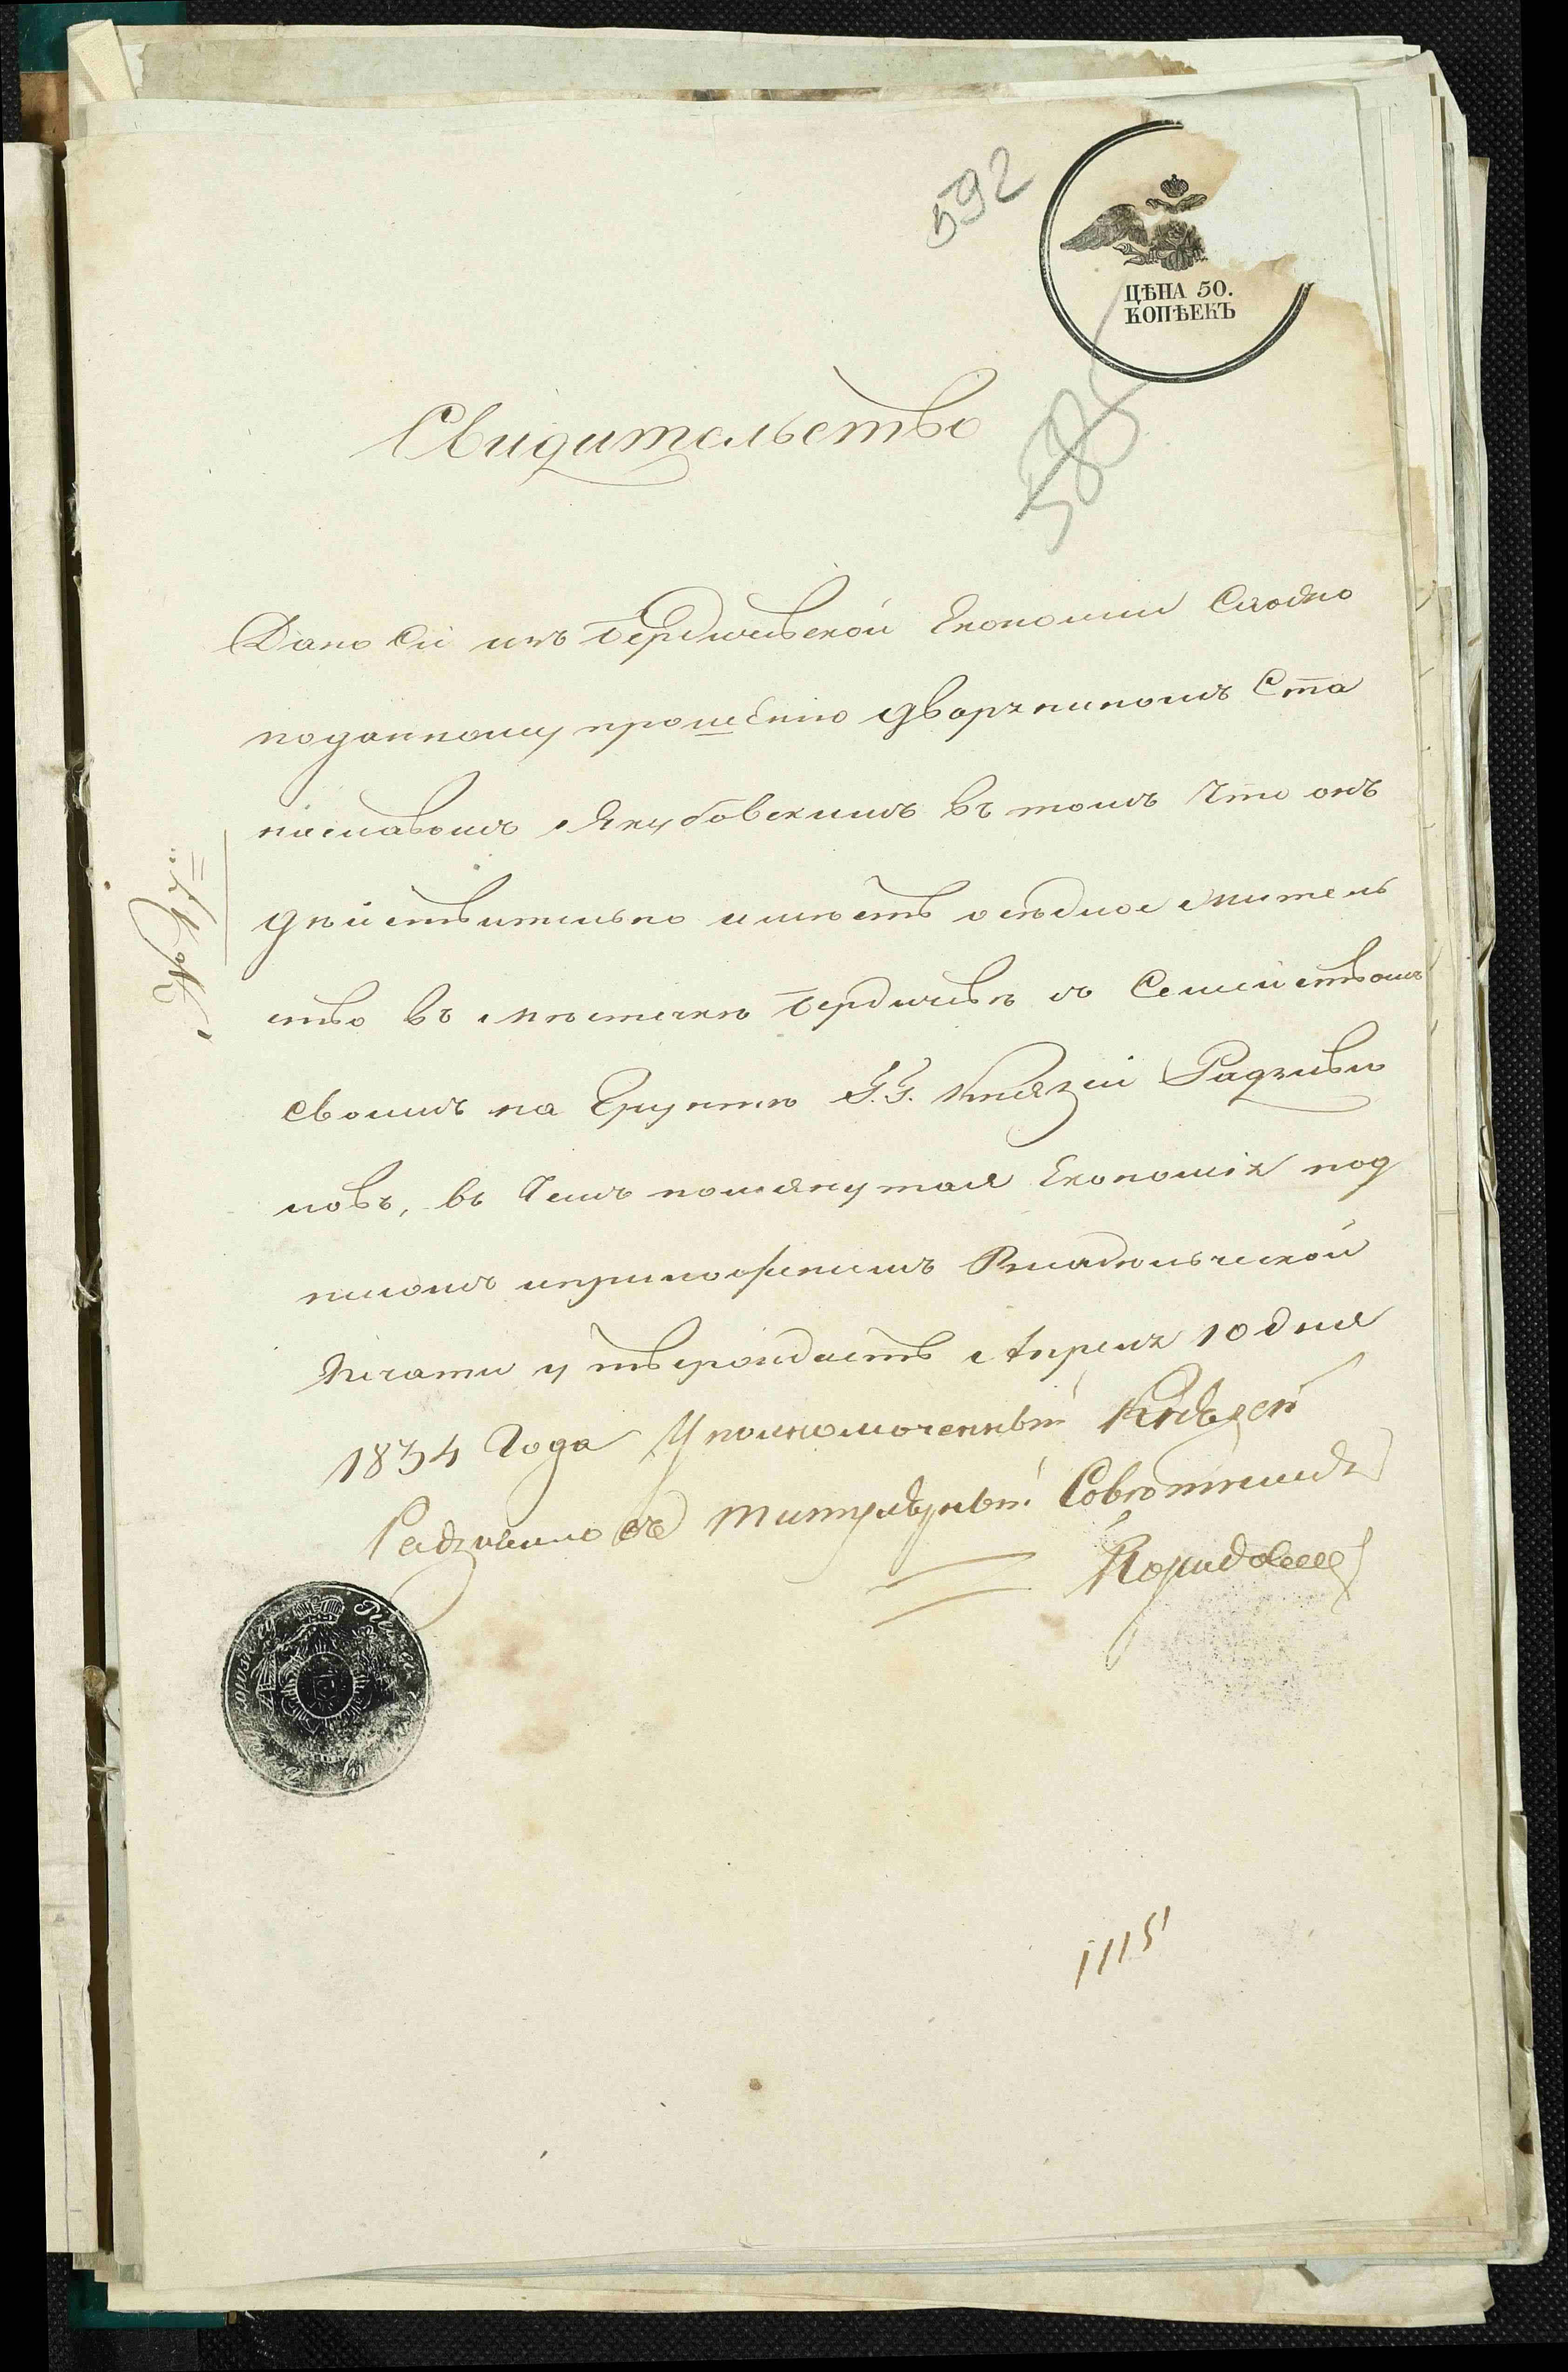 592
ЦѢНА 50.
КОПѢЕКЪ
585
Свидительство
Дано Сіе изъ Бердичевской Економіи Слѣдно
поданному прошенію дворяниномъ Ста
ниславомъ Якубовскимъ въ томъ что онъ
дѣйствительно имѣетъ осѣдлое житель
ство въ мѣстечкѣ Бердичевѣ съ Семействомъ
своимъ на Грунтѣ Г.Г. Князей Радзивил
ловъ, въ чемъ помянутая Економія под
писомъ и приложеніемъ Владѣльческой
печати утверждаетъ Апреля 10 дня
1834 Года Уполномоченный Князей
Радзивиловъ Титулярный Совѣтникъ
1115